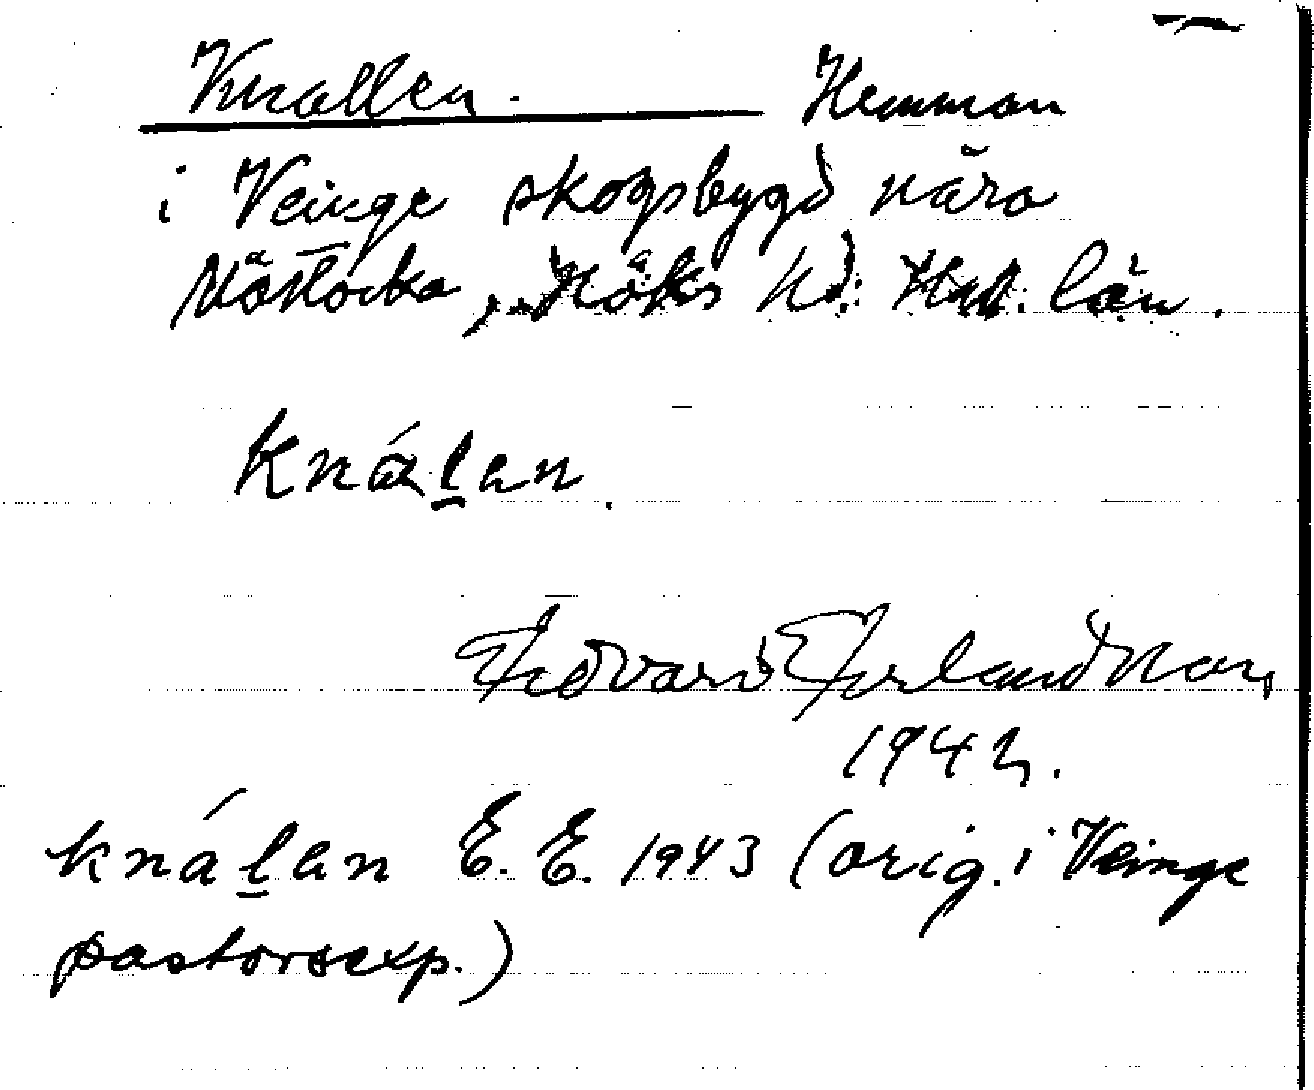 Knallen. Hemman
i Veinge skogsbygd nära
Mästocka, Höks hd: Hal. län.
knál̲en.
Edvard Erlandson,
1942.
knál̲en E. E. 1943 (orig. i Veinge
pastorsexp.)